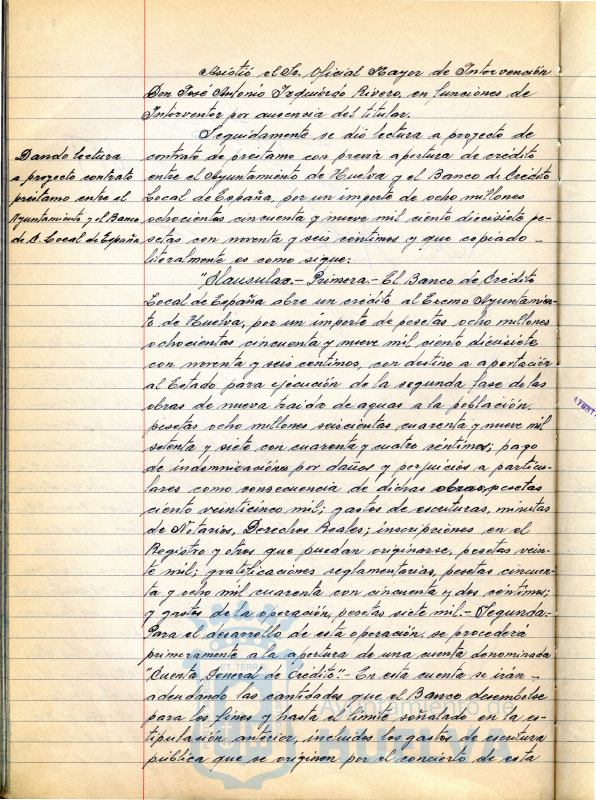 Asistió el Sr. Oficial Mayor de Intervención
Don José Antonio Izquierdo Rivero, en funciones de
Interventor por ausencia del titular.
Seguidamente se dió lectura a proyecto de
Dando lectura
a proyecto contrato
préstamo entre el
Ayuntamiento y el Banco
de C. Local de España
contrato de préstamo con previa apertura de crédito
entre el Ayuntamiento de Huelva y el Banco de Crédito
Local de España, por un importe de ocho millones
ochocientas cincuenta y nueve mil ciento diecisiete pe-
setas con noventa y seis céntimos y que copiado
literalmente es como sigue:
"Clausulas.- Primera.- El Banco de Crédito
Local de España abre un crédito al Excmo Ayuntamien-
to de Huelva, por un importe de pesetas ocho millones
ochocientas cincuenta y nueve mil ciento diecisiete
con noventa y seis céntimos, con destino a aportación
al Estado para ejecución de la segunda fase de las
obras de nueva traida de aguas a la población,
pesetas ocho millones seiscientas cuarenta y nueve mil
setenta y siete con cuarenta y cuatro céntimos; pago
de indemnizaciones por daños y perjuicios a particu-
lares como consecuencia de dichas obras, pesetas
ciento veinticinco mil; gastos de escrituras, minutas
de Notarios, Derechos Reales; inscripciones en el
Registro y otros que puedan originarse, pesetas vein-
te mil; gratificaciones reglamentarias, pesetas cincuen-
ta y ocho mil cuarenta con cincuenta y dos céntimos;
y gastos de la operación, pesetas siete mil.- Segunda.-
Para el desarrollo de esta operación, se procederá
primeramente a la apertura de una cuenta denominada
"Cuenta General de Crédito".- En esta cuenta se irán
adeudando las cantidades que el Banco desembolse
para los fines y hasta el límite señalado en la es-
tipulación anterior, incluidos los gastos de escritura
pública que se originen por el concierto de esta
ET TERRÆ
Ayuntamiento de
HUELVA